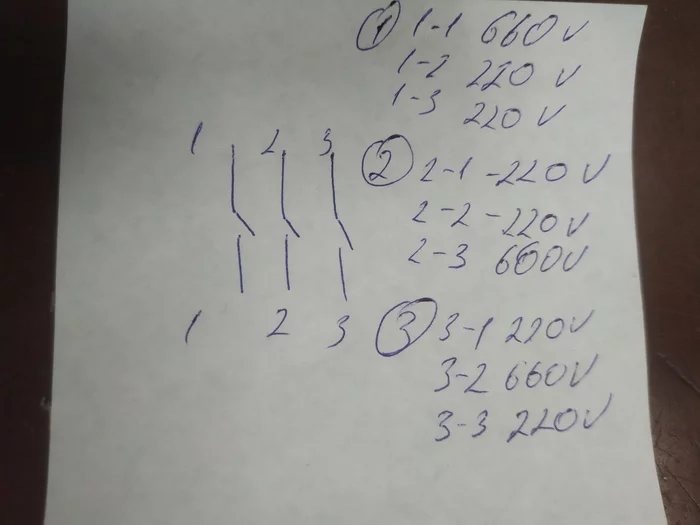 ① 1-1 660v
1-2 220v
1-3 220v
1 2 3
② 2-1 -220v
2-2 -220v
2-3 660v
1 2 3
③ 3-1 220v
3-2 660v
3-3 220v